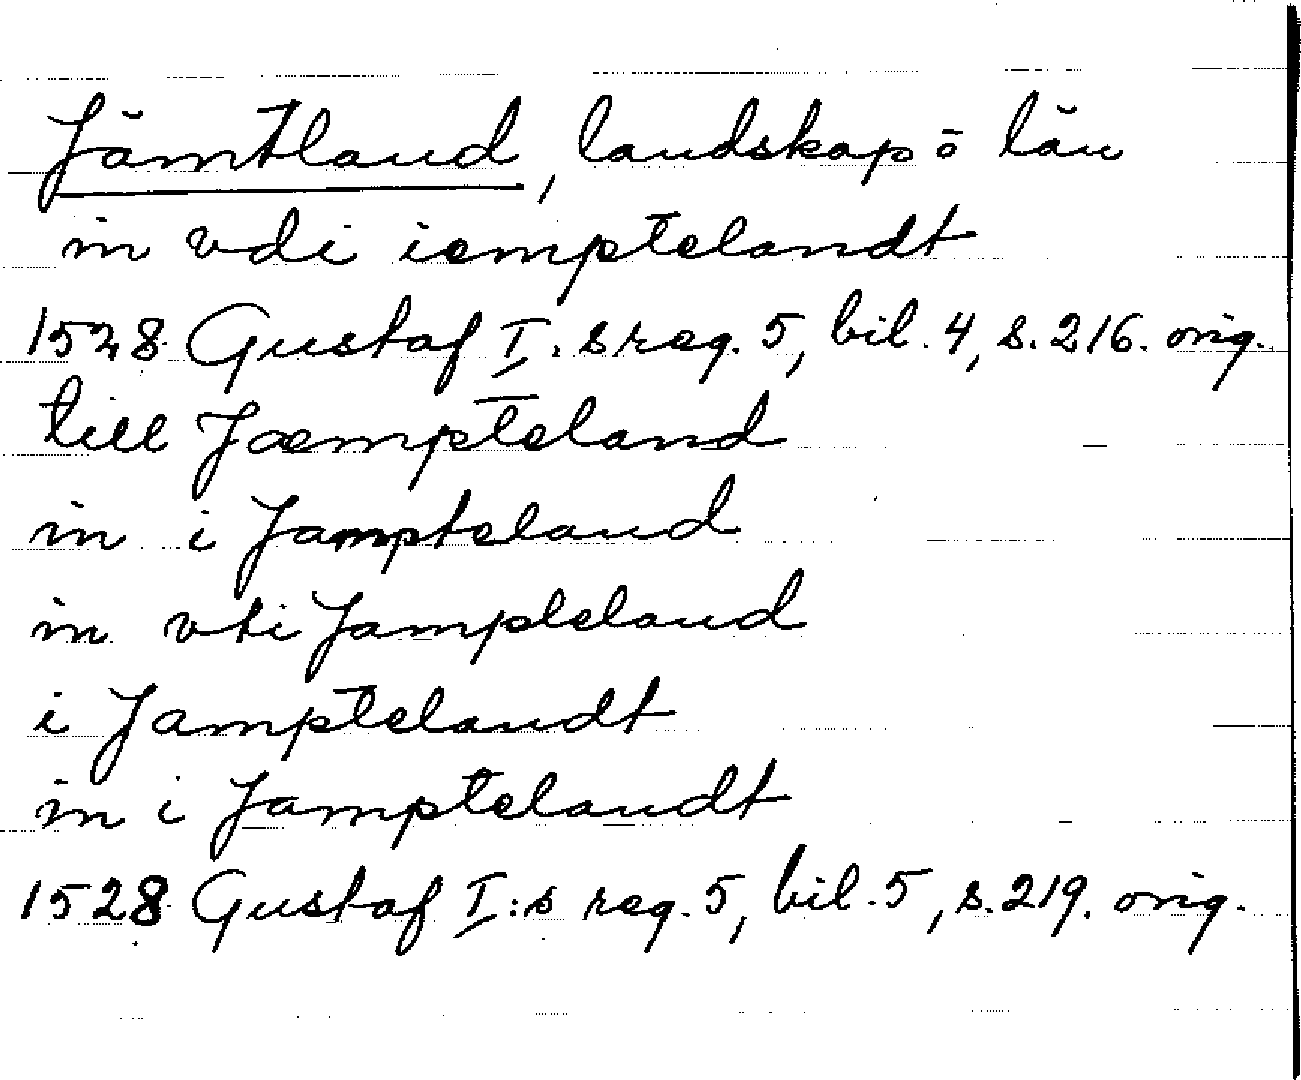 Jämtland, landskap o län
in vdi iemptelandt
1528 Gustaf I:s reg. 5, bil. 4, s. 216. orig.
till Jæmpteland
in i Jampteland
in vti Jampteland
i Jamptelandt
in i Jamptelandt
1528 Gustaf I:s reg. 5, bil. 5, s. 219. orig.